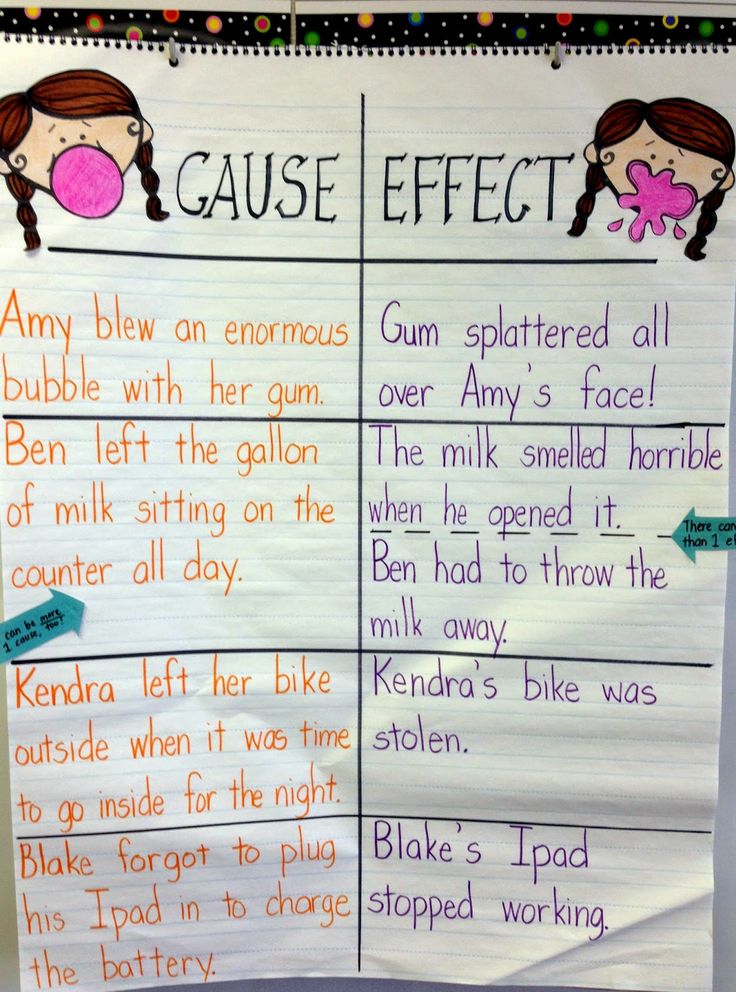 CAUSE
EFFECT
Amy blew an enormous
bubble with her gum.
Gum splattered all
over Amy's face!
Ben left the gallon
of milk sitting on the
counter all day.
can be more
1 cause, too!
The milk smelled horrible
when he opened it.
Ben had to throw the
milk away.
There can
than 1
Kendra left her bike
outside when it was time
to go inside for the night.
Kendra's bike was
stolen.
Blake forgot to plug
his Ipad in to charge
the battery.
Blake's Ipad
stopped working.